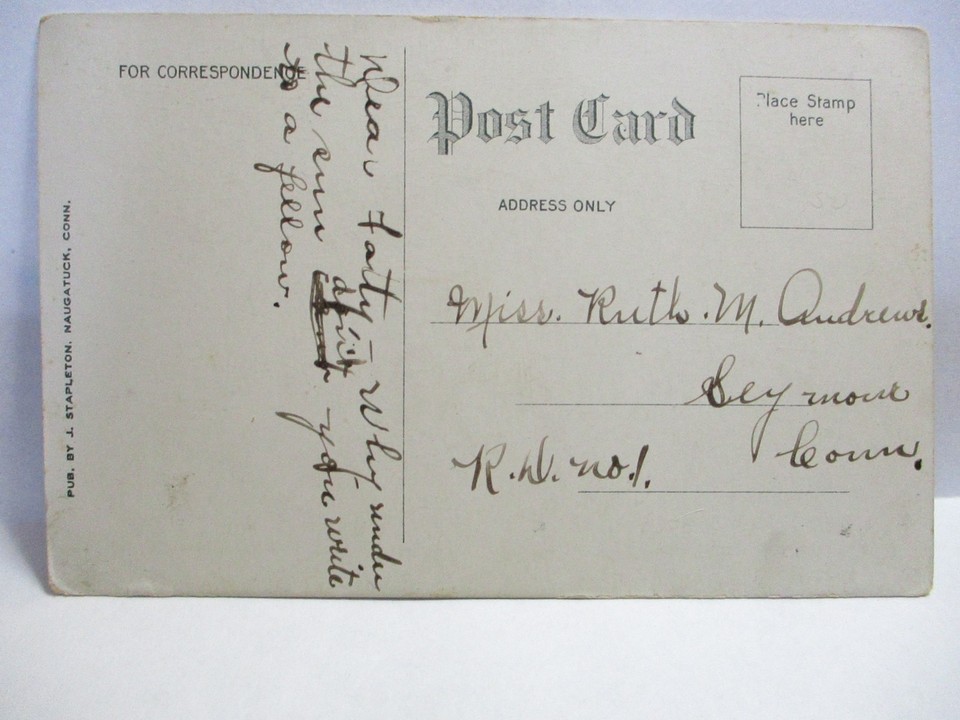 FOR CORRESPONDENCE
Dear Fatty:- Why under
the sun don't you write
to a fellow.
PUB. BY J. STAPLETON. NAUGATUCK, CONN.
Post Card
Place Stamp
here
ADDRESS ONLY
Miss. Ruth. M. Andrews.
Seymour
Conn.
R.D. no. 1.